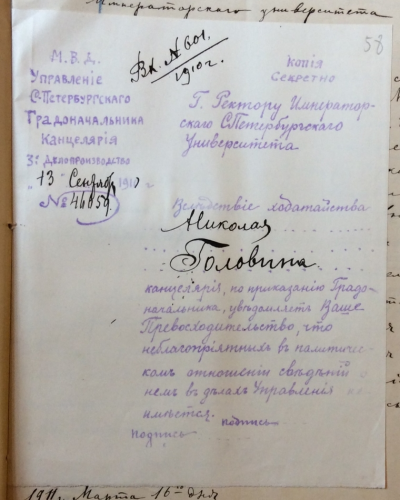 Императорскаго университета
58
Вх. № 601.
1910 г.
М. В. Д.
Управленіе
С-Петербургскаго
Градоначальника
Канцелярія
3. Дѣлопроизводство
"13" Сентября 191
№ 46859
Копія
Секретно
Г. Ректору Император-
скаго СПетербургскаго
Университета
Вслѣдствіе ходатайства
Николая
Головина
канцелярія, по приказанію Градо-
начальника, увѣдомляетъ Ваше
Превосходительство, что
неблагопріятныхъ въ политичес-
комъ отношеніи свѣдѣній о
немъ въ дѣлахъ Управленія не
имѣется.
Подпись подпись
1911 г. Марта 16го дня